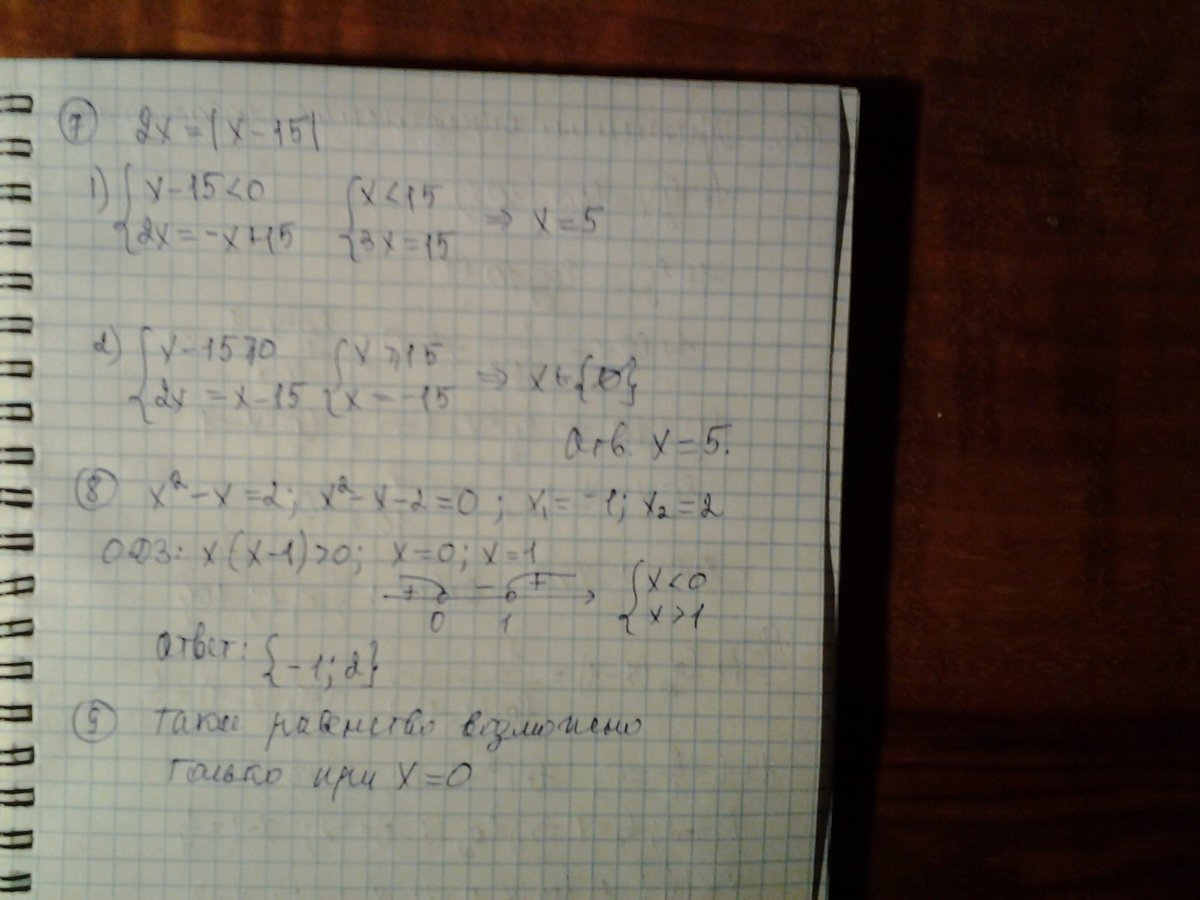 7 2x = |x - 15|
1) { x - 15 < 0 { x < 15 ⇒ x = 5
{ 2x = -x + 15 { 3x = 15
2) { x - 15 ≥ 0 { x ≥ 15 ⇒ x ∈ {∅}
{ 2x = x - 15 { x = -15
Отв. x = 5.
8 x² - x = 2; x² - x - 2 = 0; x₁ = -1; x₂ = 2
ОДЗ: x(x-1) > 0; x = 0; x = 1
+ - + { x < 0
0 1 { x > 1
Ответ: {-1; 2}
9 Такое равенство возможно
только при x = 0